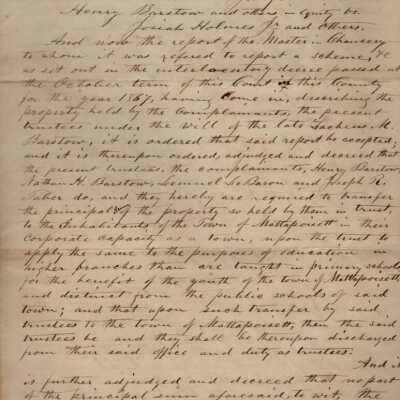 Henry Barstow and others in Equity vs.
Josiah Holmes Jr. and others.
And now the report of the Master in Chancery
to whom it was refered to report a scheme, &c
as set out in the interlocutory decree passed at
the October term of this Court in this County
for the year 1867, having come in, describing the
property held by the Complainants, the present
trustees under the will of the late Zacheus M.
Barstow, it is ordered that said report be accepted;
and it is thereupon ordered, adjudged and decreed that
the present trustees, the complainants, Henry Barstow,
Nathan H. Barstow, Lemuel LeBaron and Joseph R.
Taber do, and they hereby are required to transfer
the principal of the property so held by them in trust,
to the Inhabitants of the Town of Mattapoisett in their
Corporate capacity as a town, upon the trust to
apply the same to the purposes of education in
higher branches than are taught in primary schools
for the benefit of the youth of the town of Mattapoisett
and distinct from the public schools of said
town; and that upon such transfer by said
trustees to the town of Mattapoisett, then the said
trustees be and they shall be thereupon discharged
from their said office and duty as trustees.
And it
is further adjudged and decreed that no part
of the principal sum aforesaid, to wit, the